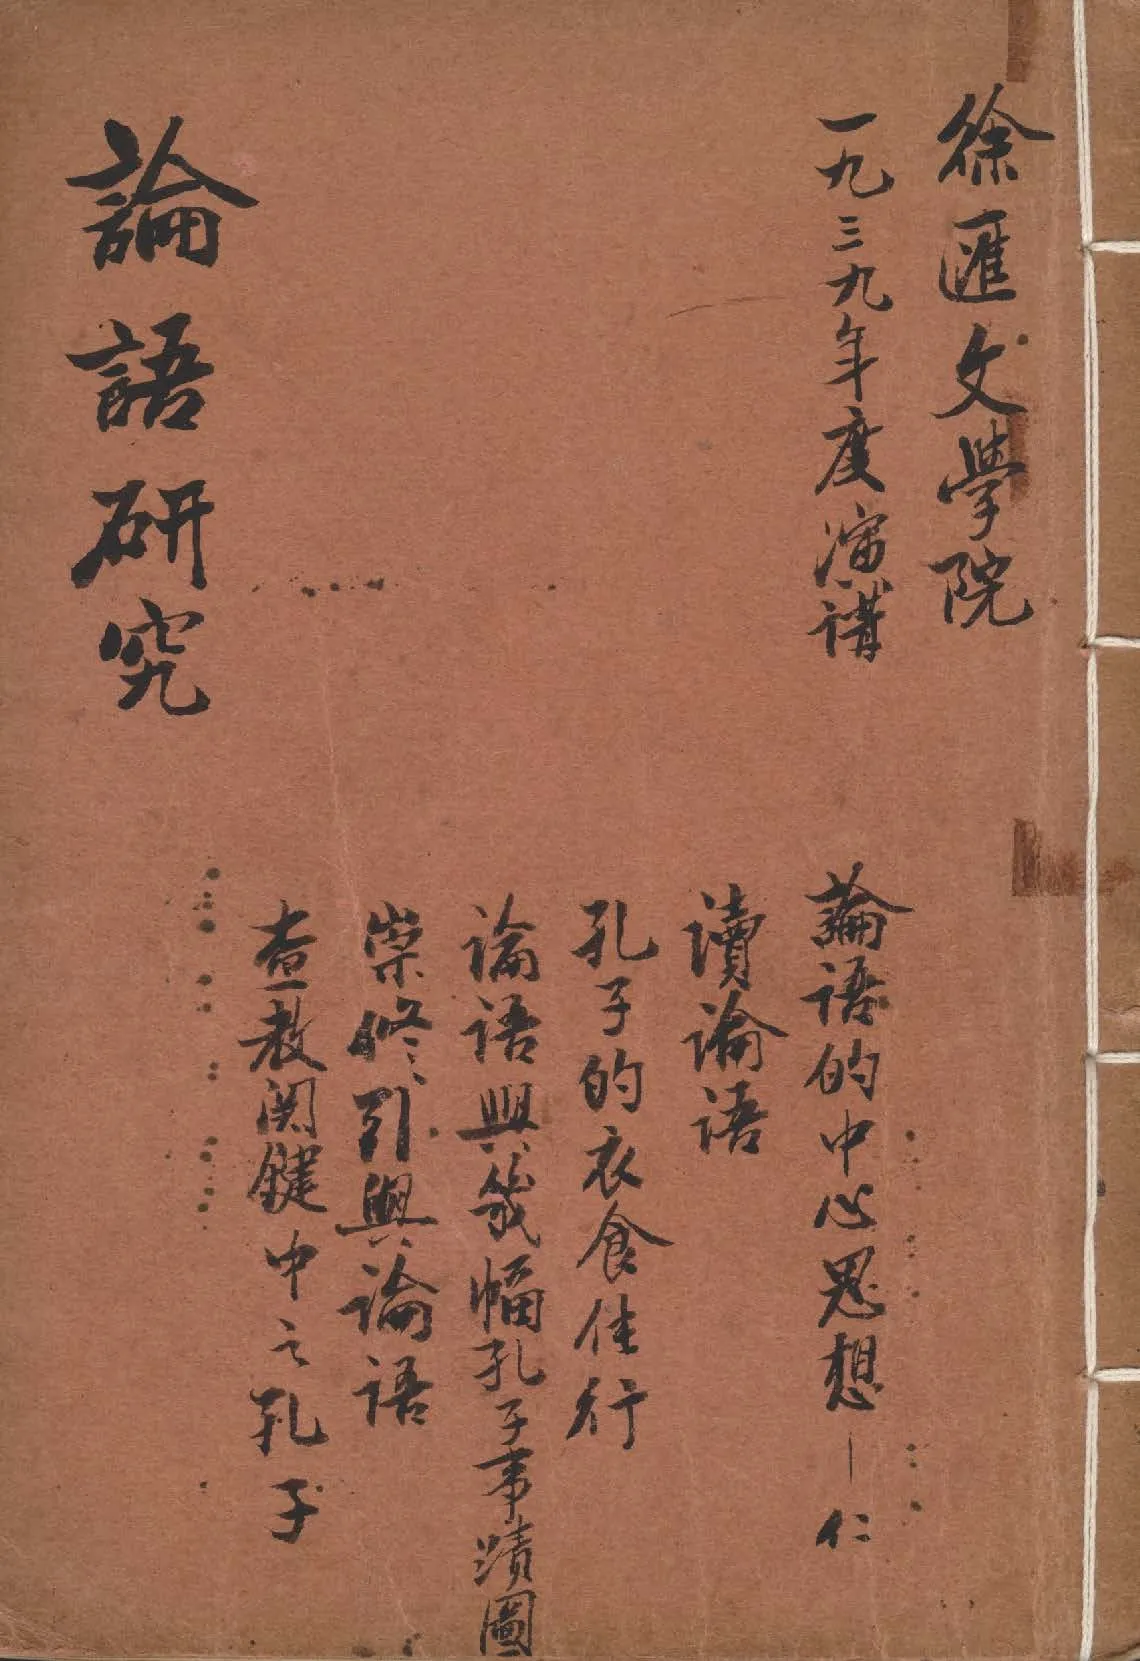 徐匯文學院
一九三九年度演講
論語的中心思想—仁
讀論語
孔子的衣食住行
論語與幾幅孔子事蹟圖
崇修引與論語
查教関鍵中之孔子
論語研究